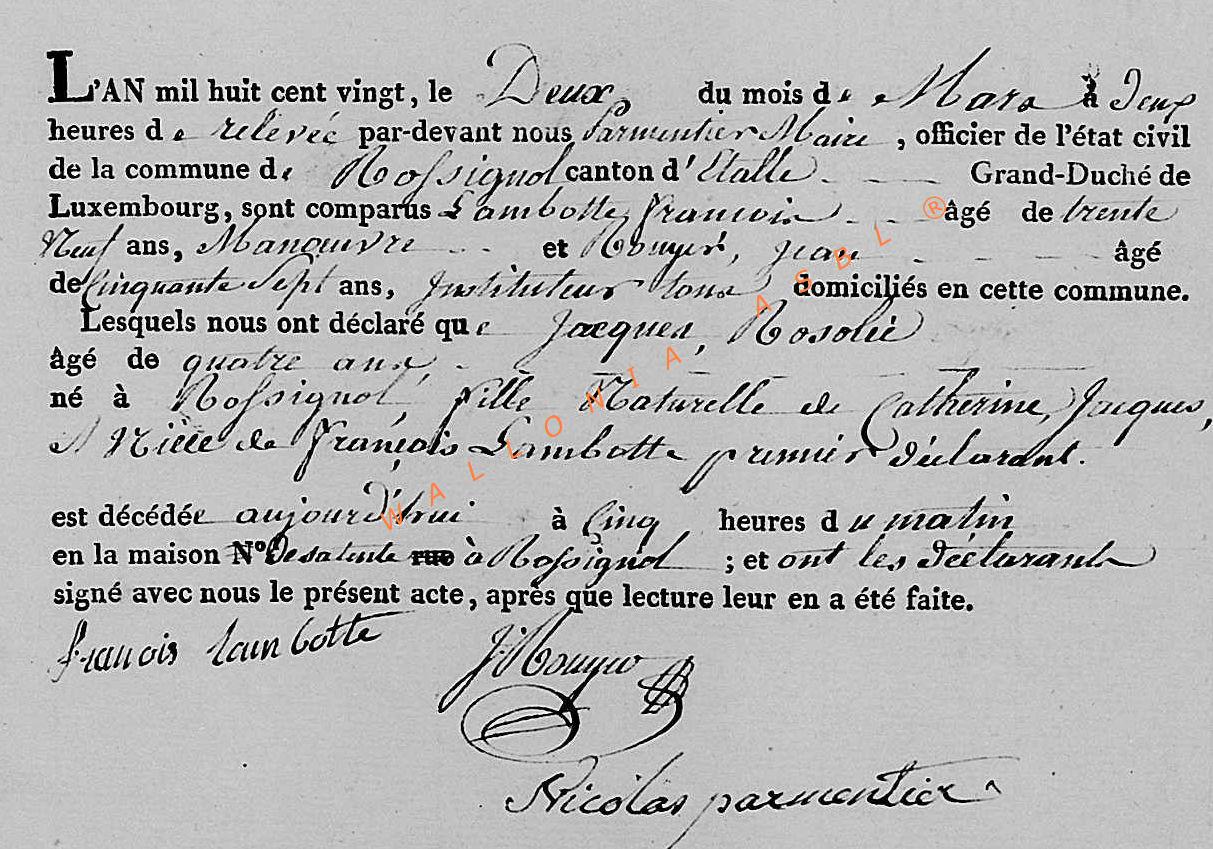 L'AN mil huit cent vingt, le Deux du mois de Mars à Deux
heures de relevée par-devant nous Parmentier Maire, officier de l'état civil
de la commune de Rossignol canton d'Etalle Grand-Duché de
Luxembourg, sont comparus Lambotte, françois âgé de trente
Neuf ans, Manœuvre et Rouyer, jean âgé
de Cinquante Sept ans, Instituteur tous domiciliés en cette commune.
Lesquels nous ont déclaré que Jacques, Rosalie
âgé de quatre ans,
né à Rossignol, fille Naturelle de Catherine, Jacques,
et Nièce de françois Lambotte premier déclarant.
est décédée aujourd'hui à Cinq heures du matin
en la maison N° de sa tente rue à Rossignol ; et ont les déclarants
signé avec nous le présent acte, après que lecture leur en a été faite.
francois lambotte J: Rouyer
Nicolas parmentier
WALLONIA ASBL ®